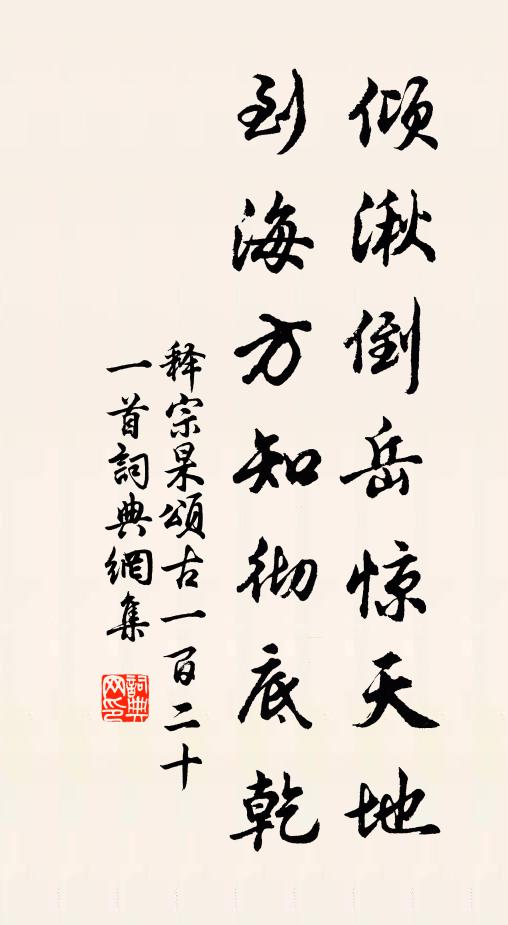 倾湫倒岳惊天地
到海方知彻底乾
释宗杲頌古一百二十
一首詞典網集
詞典
网印